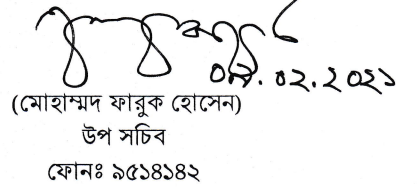 ০৯.০২.২০২১
(মোহাম্মদ ফারুক হোসেন)
উপ সচিব
ফোনঃ ৯৫১৪১৪২